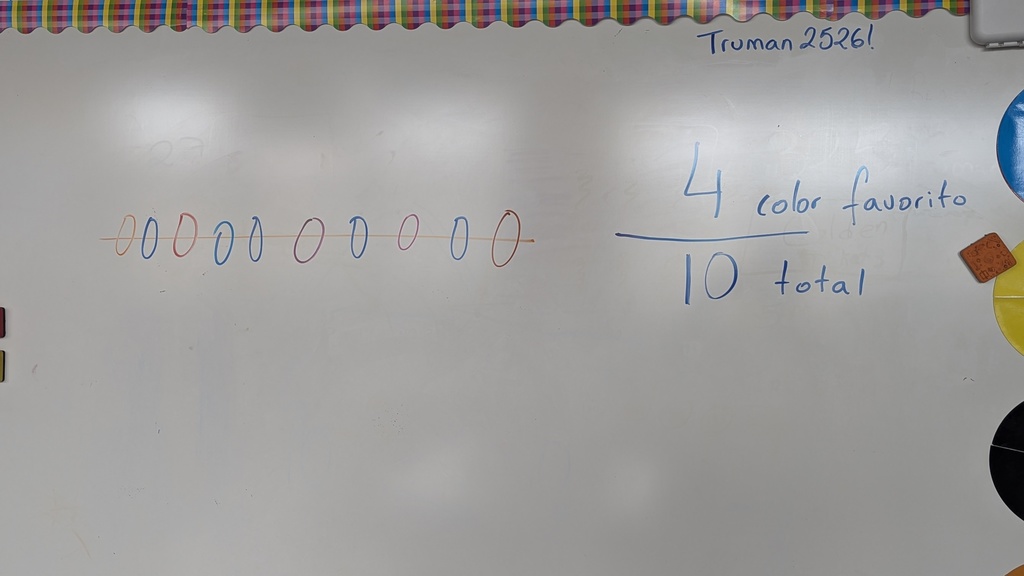 Truman 2526!
4 color favorito
10 total